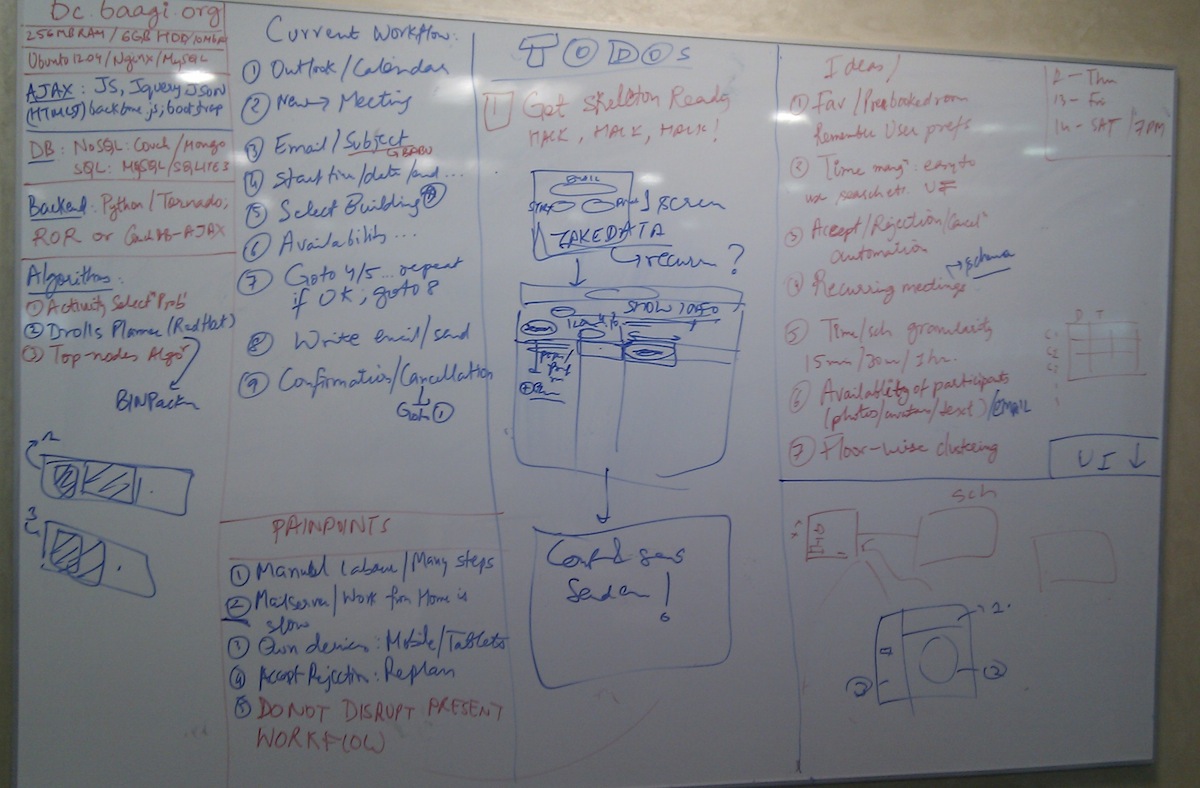 Dc.baagi.org
256MB RAM / 6GB HDD /
Ubuntu 12.04 / Nginx / MySQL
AJAX : JS, Jquery JSON
(HTML5) backbone js; bootstrap
DB : NoSQL: Couch / Mongo
SQL: MySQL / SQLITE3
Backend : Python / Tornado;
ROR or CouchDB-AJAX
Algorithms :
① Activity Select Prob
② Drolls Planner (RedHat)
③ Top-nodes Algo
BINPack
2
3
Current Workflow:
① Outlook / Calendar
② New → Meeting
③ Email / Subject
④ Start tim / date / end ...
⑤ Select Building
⑥ Availability ...
⑦ Goto 4/5 ... repeat
if OK, goto 8
⑧ Write email / send
⑨ Confirmation / Cancellation
Goto ①
PAINPOINTS
① Manual Labour / Many steps
② Mailserver / Work from Home is
slow
③ Own devices : Mobile / Tablets
④ Accept Rejection : Replan
⑤ DO NOT DISRUPT PRESENT
WORKFLOW
TODOS
1 Get Skeleton Ready
HACK, HACK, HACK!
EMAIL
1 screen
TAKE DATA
recurr ?
SHOW INFO
Conf &
!
Ideas /
① Fav / Prebooked room
Remember User prefs
② Time mang : easy to
use search etc. UI
③ Accept / Rejection / Cancel
automation
④ Recurring meetings
→ schema
⑤ Time / sch granularity
15min / 30m / 1hr.
⑥ Availability of participants
(photos / avatars / text) / EMAIL
⑦ Floor-wise clustering
12 - Thu
13 - Fri
14 - SAT / 7PM
D T
C1
C2
C3
UI ↓
Sch
2.
②
③